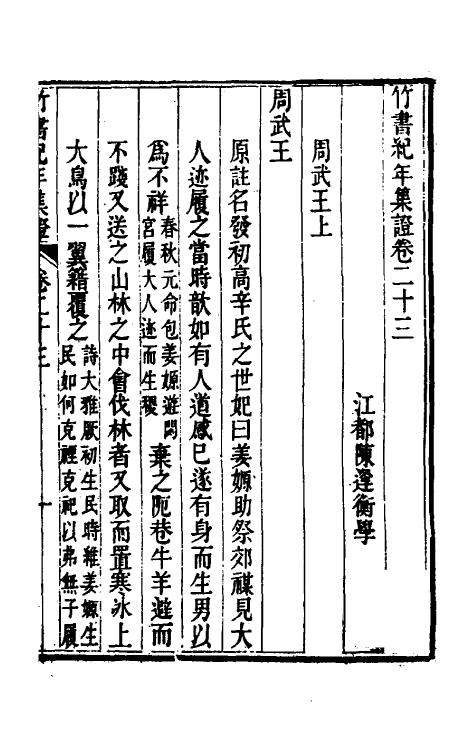 竹書紀年集證卷二十三
江都陳逢衡學
周武王上
周武王
原註名發初高辛氏之世妃曰姜嫄助祭郊禖見大
人迹履之當時歆如有人道感已遂有身而生男以
爲不祥春秋元命包姜嫄遊閟
宮履大人迹而生稷棄之阨巷牛羊避而
不踐又送之山林之中會伐林者又取而置寒冰上
大鳥以一翼籍覆之詩大雅厥初生民時維姜嫄生
民如何克禋克祀以弗無子履
竹書紀年集證 卷二十三 一